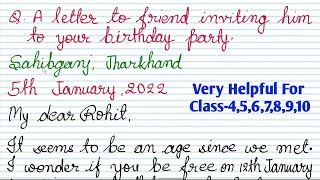 Q. A letter to friend inviting him
to your birthday party.
Sahibganj, Jharkhand
5th January, 2022
Very Helpful For
Class-4,5,6,7,8,9,10
My dear Rohit,
It seems to be an age since we met.
I wonder if you be free on 12th January